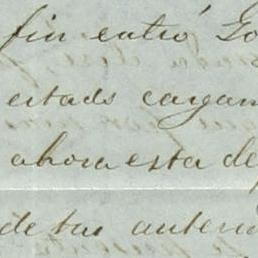 fin entró Go
estads cargan
ahora esta de
de tus anteri